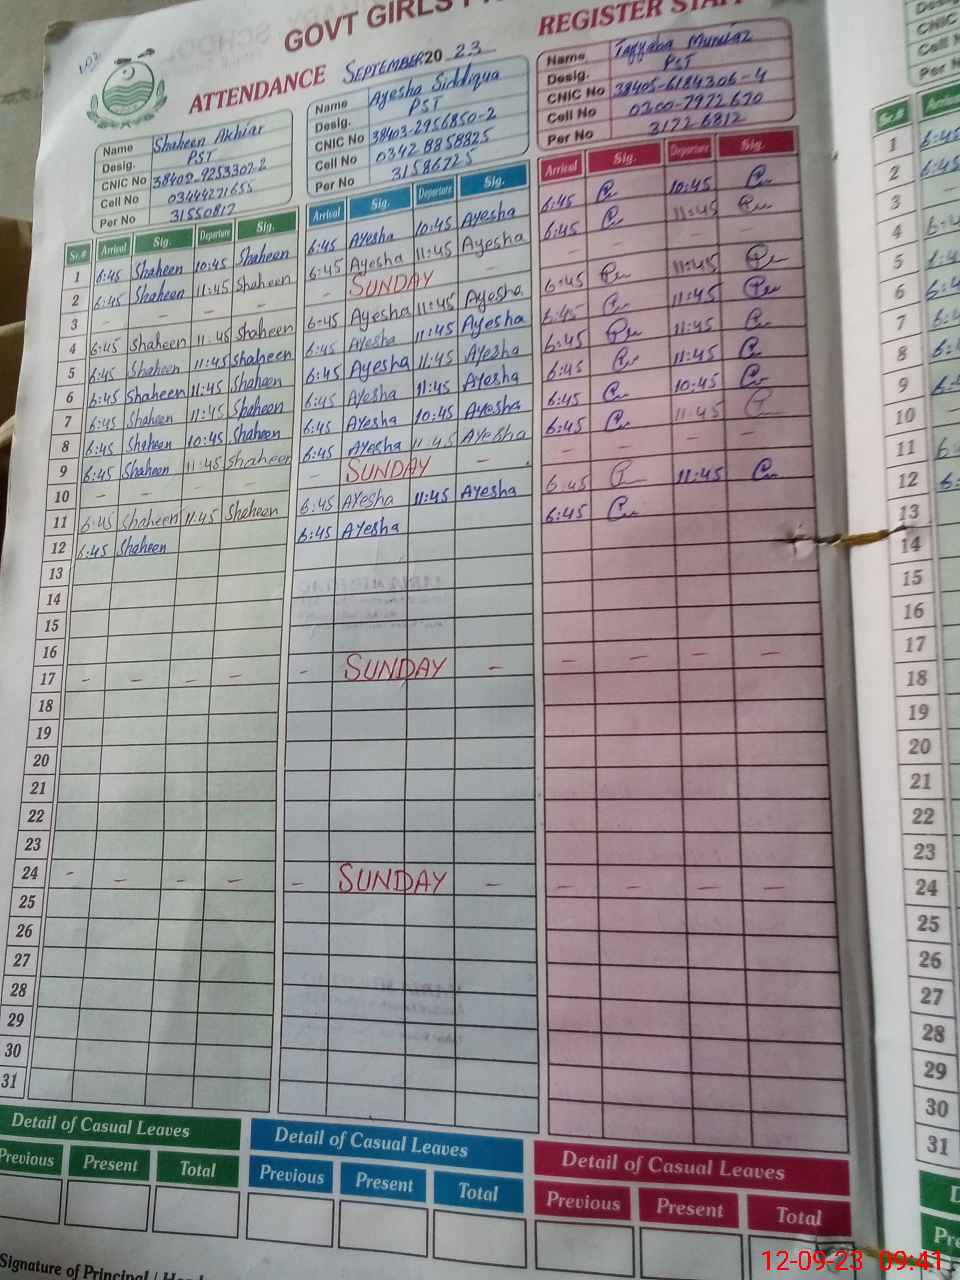 GOVT GIRLS
REGISTER
ATTENDANCE SEPTEMBER 20 23
Name Shaheen Akhtar
Desig. PST
CNIC No
Cell No 03444271655
Per No 31550817
Name Ayesha Siddiqua
Desig. PST
CNIC No 38403-2956850-2
Cell No 0342 8858825
Per No 31586725
Name Tayyaba Mumtaz
Desig. PST
CNIC No 38405-6184306-4
Cell No 0300-7972670
Per No 3172-6812
Sr.# Arrival Sig. Departure Sig. Arrival Sig. Departure Sig. Arrival Sig. Departure Sig.
1 6:45 Shaheen 10:45 Shaheen 6:45 Ayesha 10:45 Ayesha 6:45 10:45
2 6:45 Shaheen 11:45 Shaheen 6:45 Ayesha 11:45 Ayesha 6:45 11:45
3 - - - - - SUNDAY - - - - -
4 6:45 Shaheen 11:45 Shaheen 6:45 Ayesha 11:45 Ayesha 6:45 11:45
5 6:45 Shaheen 11:45 Shaheen 6:45 Ayesha 11:45 Ayesha 6:45 11:45
6 6:45 Shaheen 11:45 Shaheen 6:45 Ayesha 11:45 Ayesha 6:45 11:45
7 6:45 Shaheen 11:45 Shaheen 6:45 Ayesha 11:45 Ayesha 6:45 11:45
8 6:45 Shaheen 10:45 Shaheen 6:45 Ayesha 10:45 Ayesha 6:45 10:45
9 6:45 Shaheen 11:45 Shaheen 6:45 Ayesha 11:45 Ayesha 6:45 11:45
10 - - - - - SUNDAY - - - - -
11 6:45 Shaheen 11:45 Shaheen 6:45 Ayesha 11:45 Ayesha 6:45 11:45
12 6:45 Shaheen 6:45 Ayesha 6:45
13
14
15
16
17 - - - - - SUNDAY - - - - -
18
19
20
21
22
23
24 - - - - - SUNDAY - - - - -
25
26
27
28
29
30
31
Detail of Casual Leaves Detail of Casual Leaves Detail of Casual Leaves
Previous Present Total Previous Present Total Previous Present Total
Signature of Principal /
CNIC
Cell
Sr.#
1 6:45
2 6:45
3
4
5
6
7
8
9
10
11
12
13
14
15
16
17
18
19
20
21
22
23
24
25
26
27
28
29
30
31
12-09-23 09:41